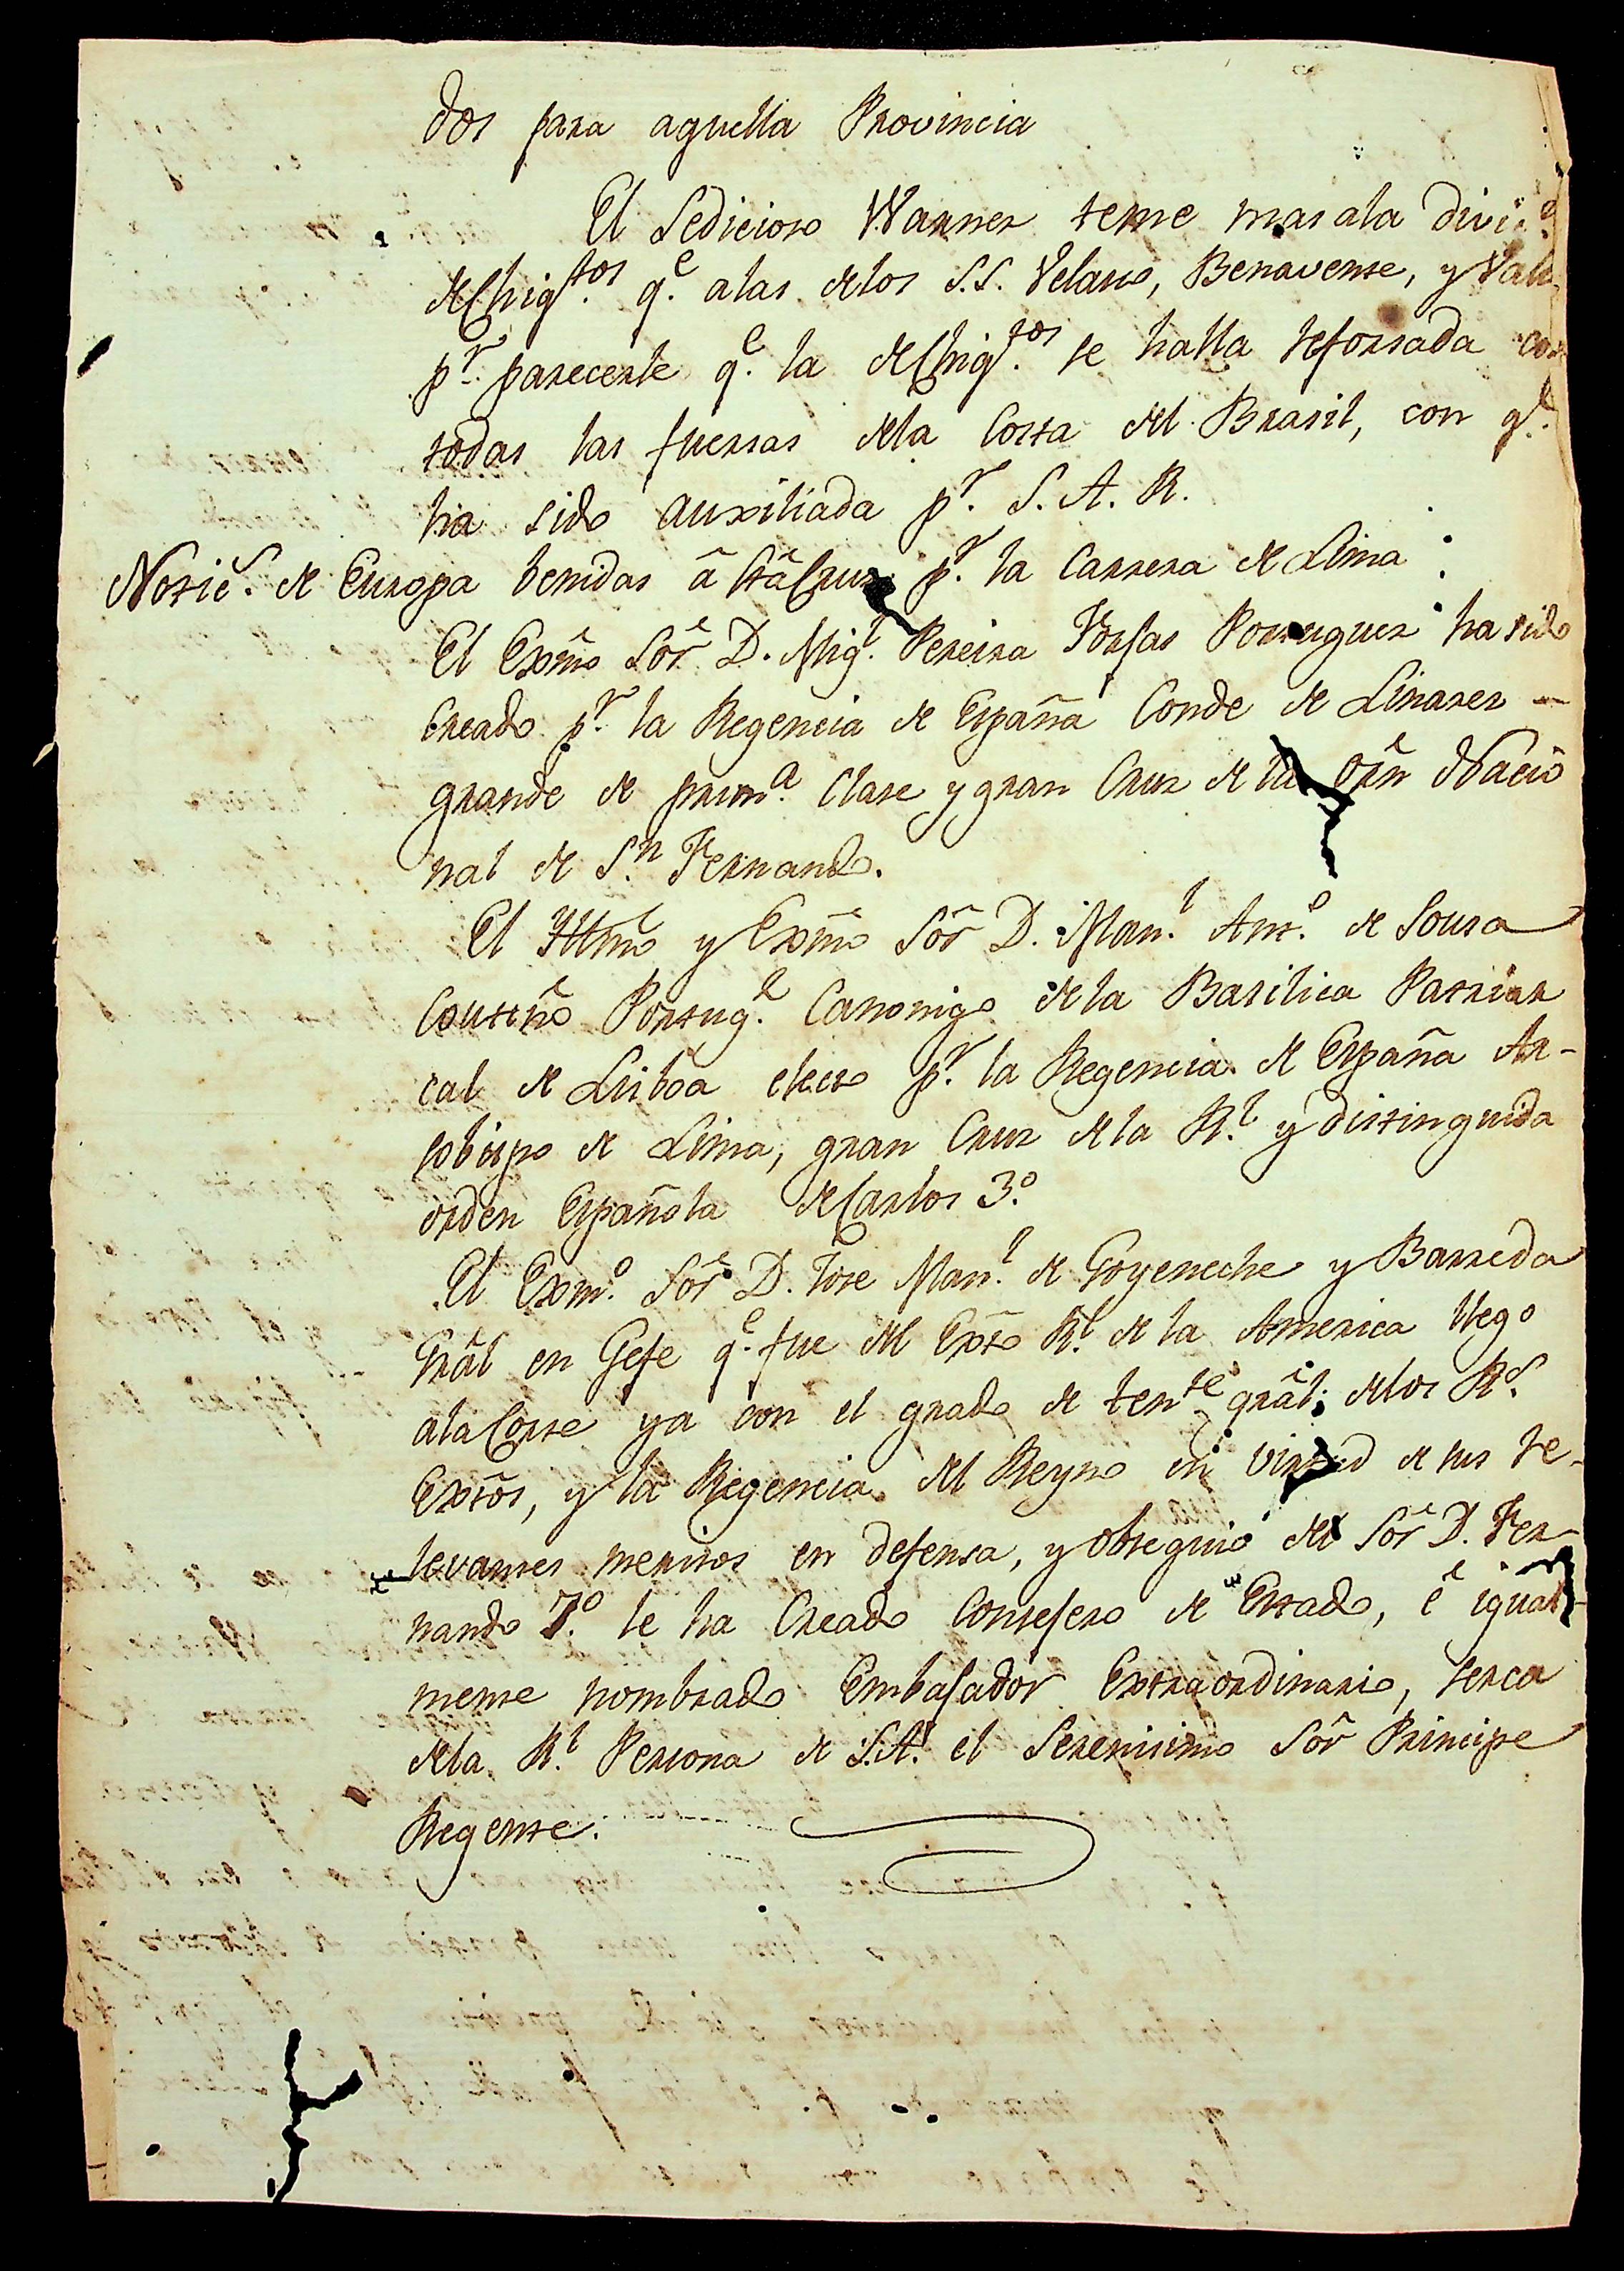 dos para aquella Provincia
El Sedicioso Warnes teme mas ala divi.ⁿ
deChiq.ᵗᵒˢ q.ᵉ alas delos S.S. Velasco, Benavente, y
p.ʳ parecerle q.ᵉ la deChiq.ᵗᵒˢ se halla reforsada con
todas las fuersas dela Costa del Brasil, con q.ᵉ
ha sido auxiliada p.ʳ S. A. R.
Notic.ˢ de Europa benidas â StâCruz p.ʳ la Carrera de Lima:
El Exm̃o Sõr D. Mig.ˡ Pereira Forjas Portuguez ha sido
Creado p.ʳ la Regencia de España Conde de Linares –
grande de prim.ᵃ Clase y gran Cruz de la orñ Nacio
nal de S.ⁿ Fernando.
El Yllm̃o y Exm̃o Sõr D. Man.ˡ Ant.ᵒ de Sousa
Coutiño Portug.ᵉ Canonigo dela Basilica Patriar
cal de Lisboa electo p.ʳ la Regencia de España Ar-
sobispo de Lima, gran Cruz dela R.ˡ y distinguida
orden Española deCarlos 3.º
El Exm.º Sõr D. Jose Man.ˡ de Goyeneche y Barreda
Grãl en Gefe q.ᵉ fue del Extõ R.ˡ de la America llego
alaCorte ya con el grado de ten.ᵗᵉ grãl. delos R.ˢ
Extõs, y la Regencia del Reyno en virtud de sus re-
levantes meritos en defensa, y obsequio del Sõr D. Fer-
nando 7.º le ha Creado Consejero de Estado, é igual-
mente nombrado Embajador Extraordinario, serca
dela R.ˡ Persona de S.A. el Serenisimo Sõr Principe
Regente.